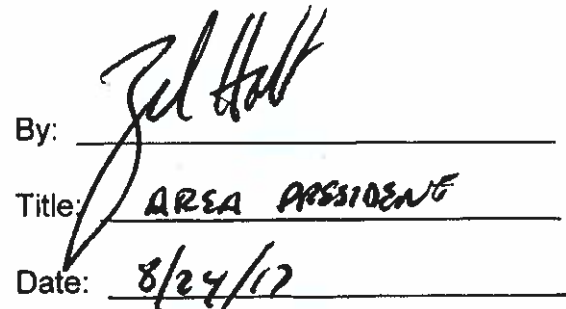 By:
Title: AREA PRESIDENT
Date: 8/24/17